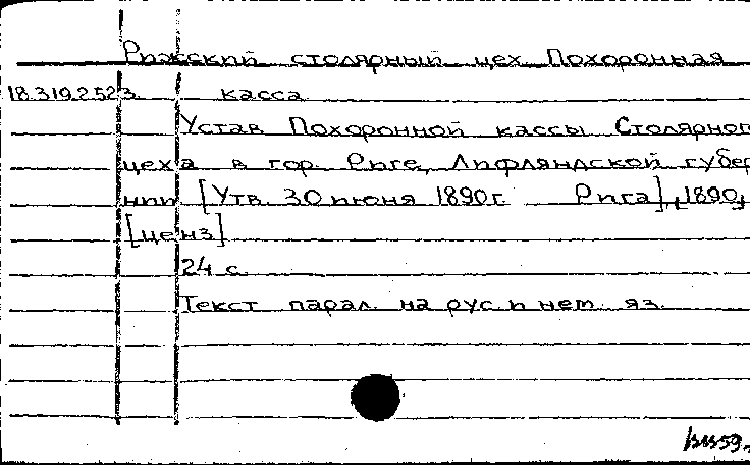 Рижский столярный цех Похоронная
18.319.2.523. касса
Устав Похоронной кассы Столярног
цеха в гор. Риге, Лифляндской губер
нии [Утв. 30 июня 1890г. Рига], 1890,
[ценз]
24 с.
Текст парал. на рус. и нем. яз.